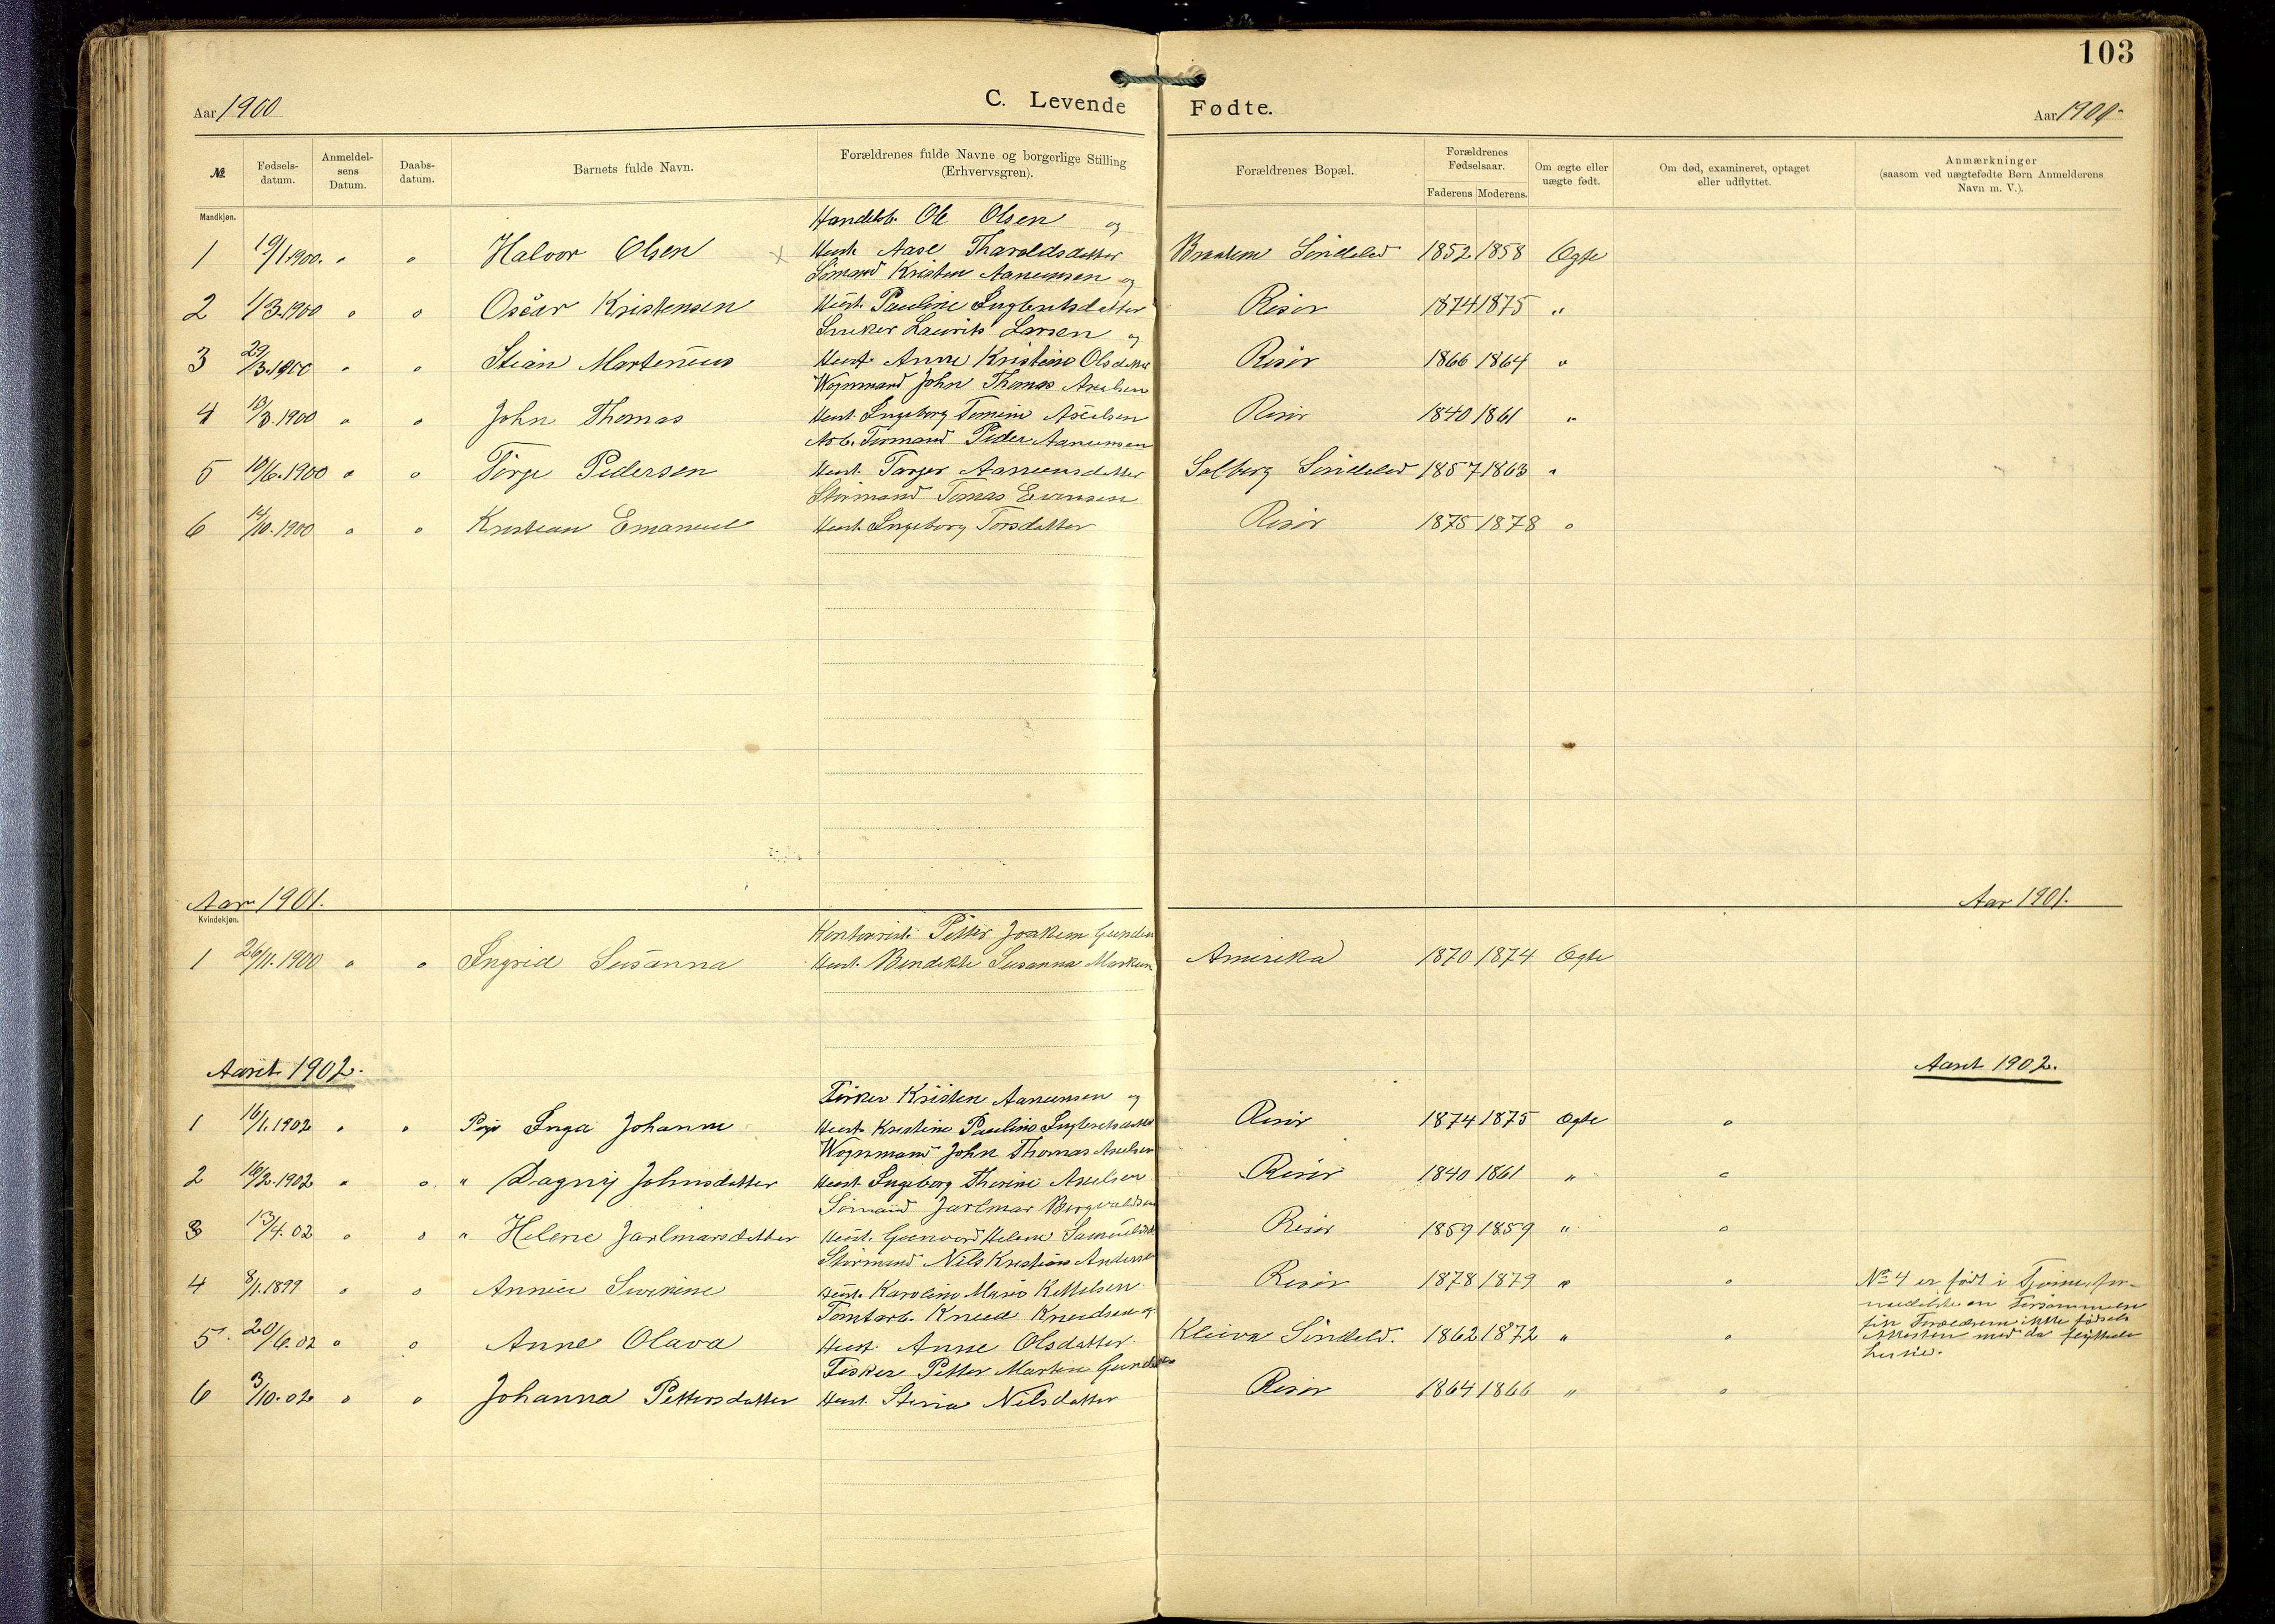 103
Aar 1900
C. Levende Fødte.
Aar 1900.
№ Fødsels-datum. Anmeldel-sens Datum. Daabs-datum. Barnets fulde Navn. Forældrenes fulde Navne og borgerlige Stilling (Erhvervsgren). Forældrenes Bopæl. Forældrenes Fødselsaar. Faderens Moderens. Om ægte eller uægte født. Om død, examineret, optaget eller udflyttet. Anmærkninger (saasom ved uægtefødte Børn Anmelderens Navn m. V.).
Mandkjøn.
Handelsb. Ole Olsen og
1 19/1.1900. " " Halvor Olsen Hust. Aase Tharaldsdatter Søndeled 1852 1858 Ægte
Sømand Kristen Aanumsen og
2 1/3.1900 " " Oscar Kristensen Hust. Pauline Engbretsdatter Risør 1874 1875 "
Laurits Larsen og
3 29/3.1900 " " Stian Martenius Hust. Anne Kristine Olsdatter Risør 1866 1864 "
Wognmand John Thomas Axelsen
4 13/3.1900 " " John Thomas Hust. Ingeborg Tomine Axelsen Risør 1840 1861 "
Arb. Formand Peder Aanumsen
5 10/6.1900 " " Tørje Pedersen Hust. Targer Aanumsdatter Solberg Søndeled 1857 1863 "
Størmand Tomas Evensen
6 14/10.1900 " " Kristian Emanuel Hust. Ingeborg Torsdatter Risør 1875 1878 "
Aar 1901. Aar 1901.
Kvindekjøn.
Kontorist. Petter Joakim
1 26/11.1900 " " Ingrid Susanna Hust. Bendikte Susanna Amerika 1870 1874 Ægte
Aaret 1902. Aaret 1902.
Fisker Kristen Aanumsen og
1 16/1.1902 " " Pige Inga Johanne Hust. Kristine Pauline Engbretsdatter Risør 1874 1875 Ægte "
Wognmand John Thomas Axelsen
2 16/2.1902 " " " Dagny Johnsdatter Hust. Ingeborg Thomine Axelsen Risør 1840 1861 " "
Sømand Jarlmar Bergvaldsen
3 13/4.02 " " " Helene Jarlmarsdatter Hust. Gunvord Helene Risør 1859 1859 " "
Størmand Nils Kristian Andersen
4 8/1.1899 " " Annie Hust. Karoline Marie Kettelsen Risør 1878 1879 " " No 4 er født i
Tomtarb. Knud Knudsen og
5. 20/6.02 " " Anne Olava Hust. Anne Olsdatter. Kleiva Søndeld. 1862 1872 " " fik Forældrene ikke fødsels
Attesten med da flyttede
Fisker Petter Martin
6 3/10.02 " " Johanna Pettersdatter Hust. Stina Nilsdatter Risør 1864 1866 " "